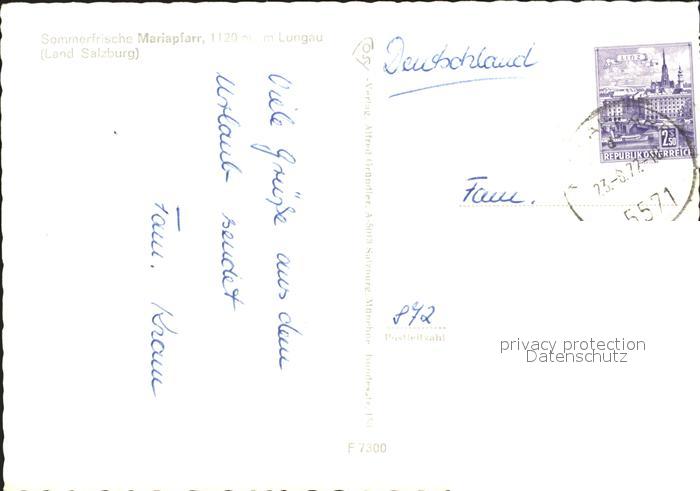 Sommerfrische Mariapfarr, 1120 m, im Lungau
(Land Salzburg)
Viele Grüße aus dem
Urlaub sendet
Fam. Kram
Verlag Alfred Gründler, A-5013 Salzburg, Münchner Bundesstr. 151
F 7300
Deutschland
LINZ
2.50
REPUBLIK ÖSTERREICH
23.-8.77
5571
Fam.
872
Postleitzahl
privacy protection
Datenschutz